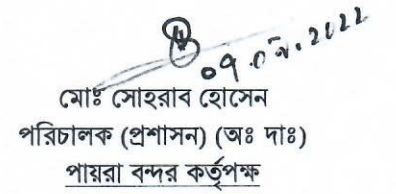 মোঃ সোহরাব হোসেন
পরিচালক (প্রশাসন) (অঃ দাঃ)
পায়রা বন্দর কর্তৃপক্ষ